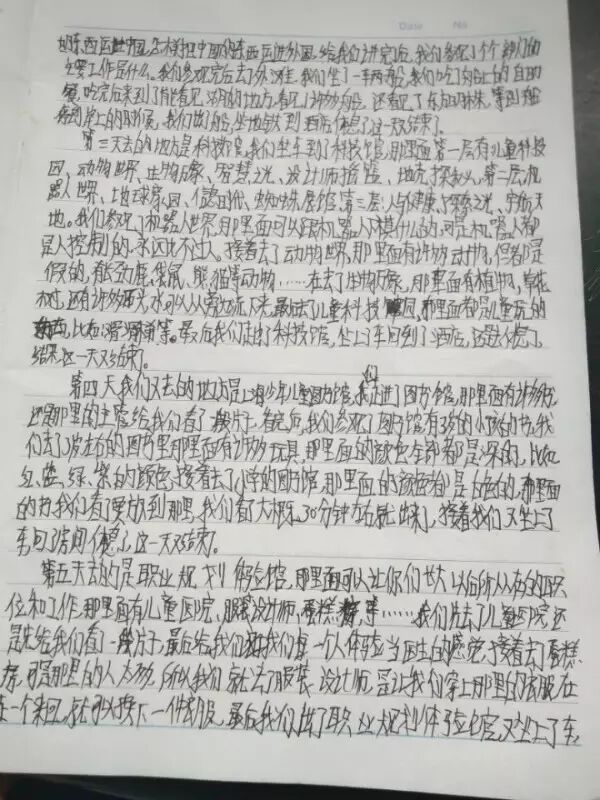 的东西运进中国,怎样把中国的东西运进外国,给我们讲完后,我们参观了个个部门的
主要工作是什么。我们参观完后去了外滩,我们坐了一辆船,我们吃了船上的自助
餐,吃完后来到了能看见湖的地方,看见了许多船,还看见了东方明珠,等到船
到岸上的时候,我们出了船,坐地铁到酒店休息了这一天又结束了。
第三天去的地方是科技馆,我们坐车到了科技馆,那里面第一层有儿童科技
园、动物世界、生物万象、智慧之光、设计师摇篮、地壳探秘、第二层,机
器人世界、地球家园、信息时代、蜘蛛展馆、第三层,人与健康、探索之光、宇航天
地。我们参观了机器人世界,那里面可以跟机器人下棋什么的,可是机器人都
是人控制的,永远比不过人。接着去了动物世界,那里面有许多动物,但都是
假的,有长劲鹿、袋鼠、熊猫等动物……在去了生物万象,那里面有植物,草花
树,还有许多水,水可以从旁边流下来,最后去了儿童科技园,那里面都是儿童玩的
比如滑滑梯等。最后我们走出了科技馆,坐上了车回到了酒店,还是休息了
结果这一天又结束了。
第四天我们又去的地方是上海少年儿童图书馆,我们走进了图书馆,那里面有许多书,
还是那里的主管给我们看了一段片子,看完后,我们参观了图书馆有3岁的小孩的书,我
们去了3岁左右的图书里那里面有许多玩具,那里面的颜色全部都是深的,比如
红、蓝、绿、紫的颜色,接着去了小学的图书馆,那里面的颜色都是白色的,那里面
的书,我们看了要放到那里,我们看了大概30分钟左右就出来了,接着我们又坐上了
车回了房间休息了这一天又结束。
第五天去的是职业规划体验馆,那里面可以让你们长大以后所从存的职
位和工作,那里面有儿童医院、服装设计师、蛋糕房,等……我们先去了儿童医院,还
是先给我们看了一段片子,最后给我们每一个人体验当医生的感觉,接着去了蛋糕
房,可是那里的人太多,所以我们就去了服装设计师,是让我们穿上那里的衣服,在
走一个来回,就可以换下一件衣服,最后我们出了职业规划体验馆,又坐上了车,